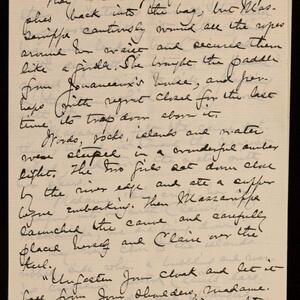 plies back into the bag, but Mas-
sawippa cautiously wound all the ropes
around her waist and secured them
like a girdle. She brought the paddle
from Jouaneaux's house, and per-
haps with regret closed for the last
time its trap door above it.
Woods, rocks, islands and water
were steeped in a wonderful amber
light. The two girls sat down close
by the river edge and ate a supper
before embarking. Then Massawippa
launched the canoe and carefully
placed herself and Claire over the
keel.
"Unfasten your cloak and let it
fall from your shoulders, madame.